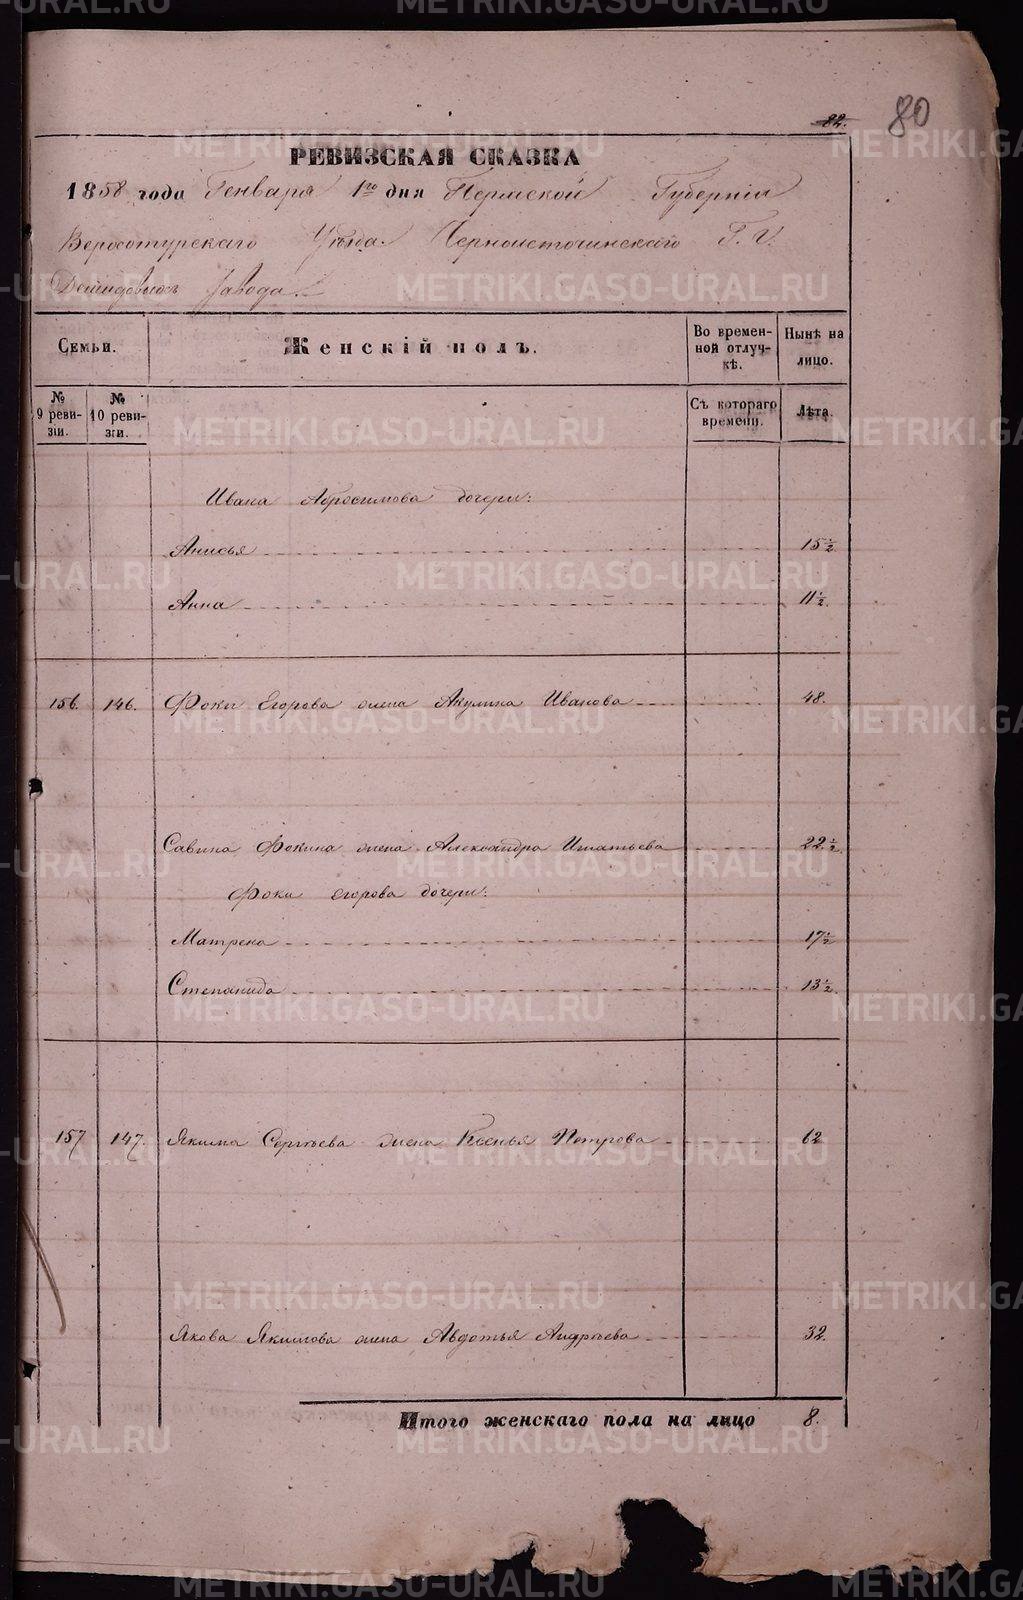 80
82.
РЕВИЗСКАЯ СКАЗКА
1858 года Генваря 1го дня Пермской Губерніи
Верхотурскаго Уѣзда. Черноисточинскаго Г. Г.
Демидовыхъ Завода.
Семьи. Женскій полъ. Во времен- Нынѣ на
ной отлуч- лицо.
кѣ.
№ №
9 реви- 10 реви- Съ котораго Лѣта.
зіи. зіи. времени.
Ивана Абросимова дочери:
Анисья 15½.
Анна 11½.
156. 146. Фоки Егорова жена Акулина Иванова 48.
Савина Фокина жена Александра Игнатьева 22½.
Фоки Егорова дочери:
Матрена 17½
Степанида 13½.
157 147. Якима Сергѣева жена Ксенья Петрова 62
Якова Якимова жена Авдотья Андрѣева 32.
Итого женскаго пола на лицо 8.
METRIKI.GASO-URAL.RU